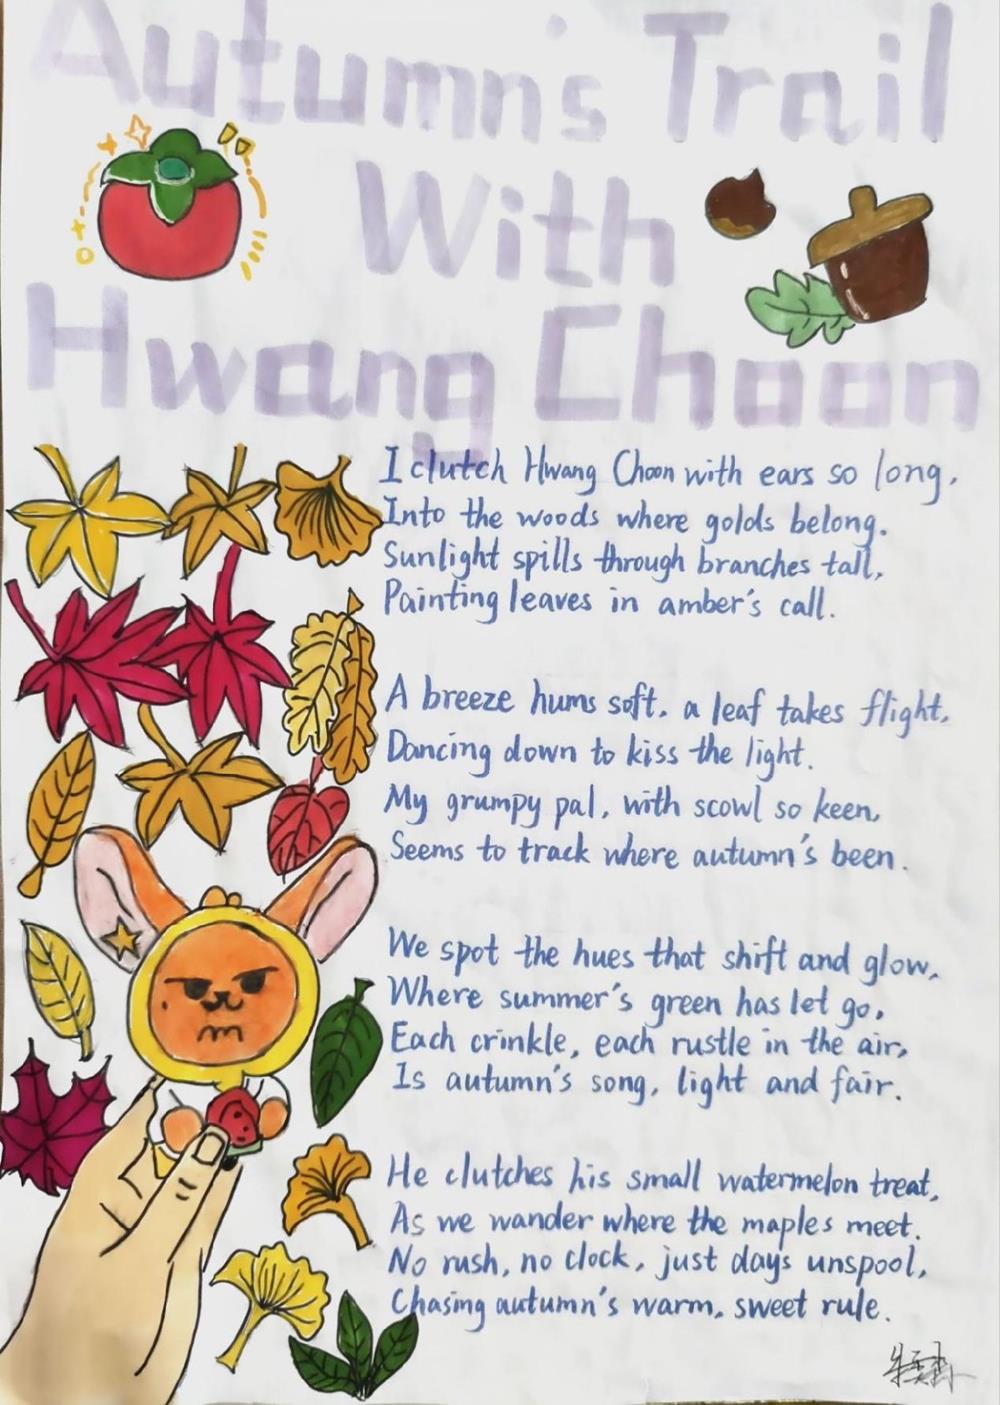 Autumn's Trail
With
Hwang Choon
I clutch Hwang Choon with ears so long,
Into the woods where golds belong.
Sunlight spills through branches tall,
Painting leaves in amber's call.
A breeze hums soft, a leaf takes flight,
Dancing down to kiss the light.
My grumpy pal, with scowl so keen,
Seems to track where autumn's been.
We spot the hues that shift and glow,
Where summer's green has let go,
Each crinkle, each rustle in the air,
Is autumn's song, light and fair.
He clutches his small watermelon treat,
As we wander where the maples meet.
No rush, no clock, just days unspool,
Chasing autumn's warm, sweet rule.